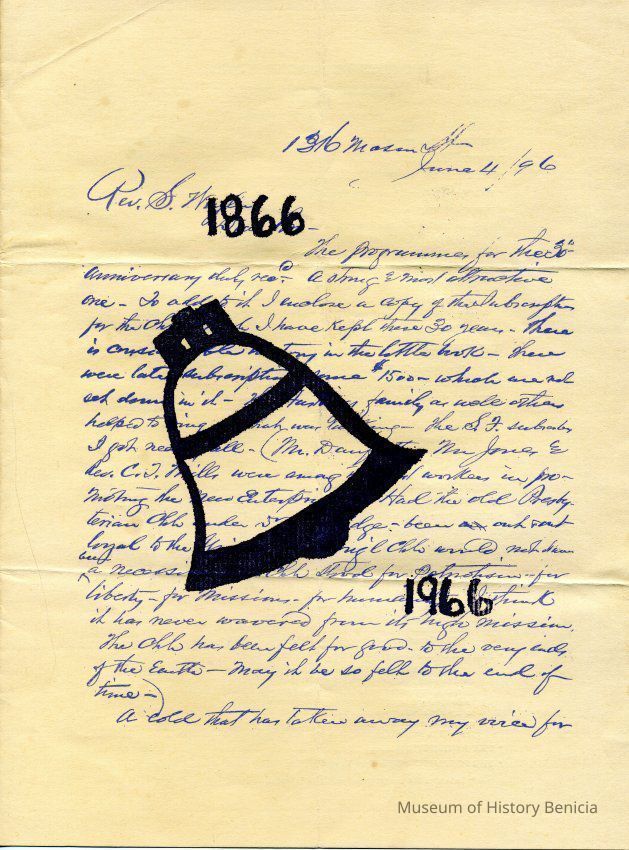 1316 Mason St
June 4 / 96
Rev. S.
1866
The programme for the 30th
anniversary duly recd. A strong & most attractive
one - To add to it I enclose a copy of the subscription
for the Chh I have kept these 30 years - There
is history in the little book - There
were later subscriptions some $1500 - which are not
set down in it - family as well others
helped to - The S.F. subscribers
I got all - (Mr. Mr Jones &
Rev. C.T. Mills were among workers in pro-
moting the new Enterprise Had the old Presby-
terian Chh under - been out & out
loyal to the Chh would not have
been a necessity Chh stood for Patriotism - for
liberty - for Missions - for I think
it has never wavered from its high mission.
The Chh has been felt for good - to the very ends
of the Earth - May it be so felt to the end of
time -)
1966
A cold that has taken away my voice for
Museum of History Benicia